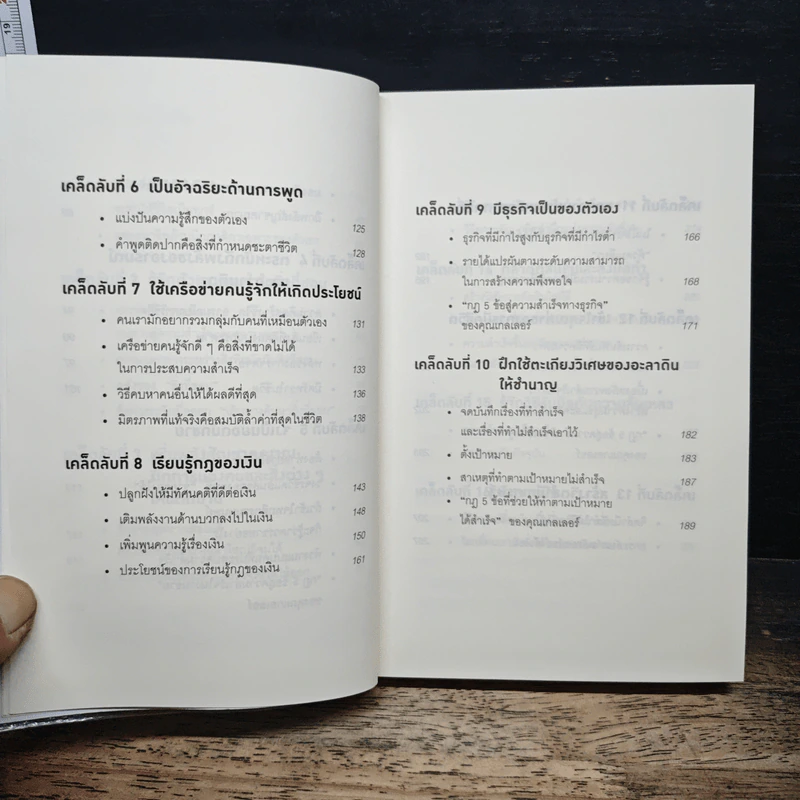 19
เคล็ดลับที่ 6 เป็นอัจฉริยะด้านการพูด
• แบ่งปันความรู้สึกของตัวเอง 125
• คำพูดติดปากคือสิ่งที่กำหนดชะตาชีวิต 128
เคล็ดลับที่ 7 ใช้เครือข่ายคนรู้จักให้เกิดประโยชน์
• คนเรามักอยากรวมกลุ่มกับคนที่เหมือนตัวเอง 131
• เครือข่ายคนรู้จักดี ๆ คือสิ่งที่ขาดไม่ได้
ในการประสบความสำเร็จ 133
• วิธีคบหาคนอื่นให้ได้ผลดีที่สุด 136
• มิตรภาพที่แท้จริงคือสมบัติล้ำค่าที่สุดในชีวิต 138
เคล็ดลับที่ 8 เรียนรู้กฎของเงิน
• ปลูกฝังให้มีทัศนคติที่ดีต่อเงิน 143
• เติมพลังงานด้านบวกลงไปในเงิน 148
• เพิ่มพูนความรู้เรื่องเงิน 150
• ประโยชน์ของการเรียนรู้กฎของเงิน 161
เคล็ดลับที่ 9 มีธุรกิจเป็นของตัวเอง
• ธุรกิจที่มีกำไรสูงกับธุรกิจที่มีกำไรต่ำ 166
• รายได้แปรผันตามระดับความสามารถ
ในการสร้างความพึงพอใจ 168
• "กฎ 5 ข้อสู่ความสำเร็จทางธุรกิจ"
ของคุณเกลเลอร์ 171
เคล็ดลับที่ 10 ฝึกใช้ตะเกียงวิเศษของอะลาดิน
ให้ชำนาญ
• จดบันทึกเรื่องที่ทำสำเร็จ
และเรื่องที่ทำไม่สำเร็จเอาไว้ 182
• ตั้งเป้าหมาย 183
• สาเหตุที่ทำตามเป้าหมายไม่สำเร็จ 187
• "กฎ 5 ข้อที่ช่วยให้ทำตามเป้าหมาย
ได้สำเร็จ" ของคุณเกลเลอร์ 189